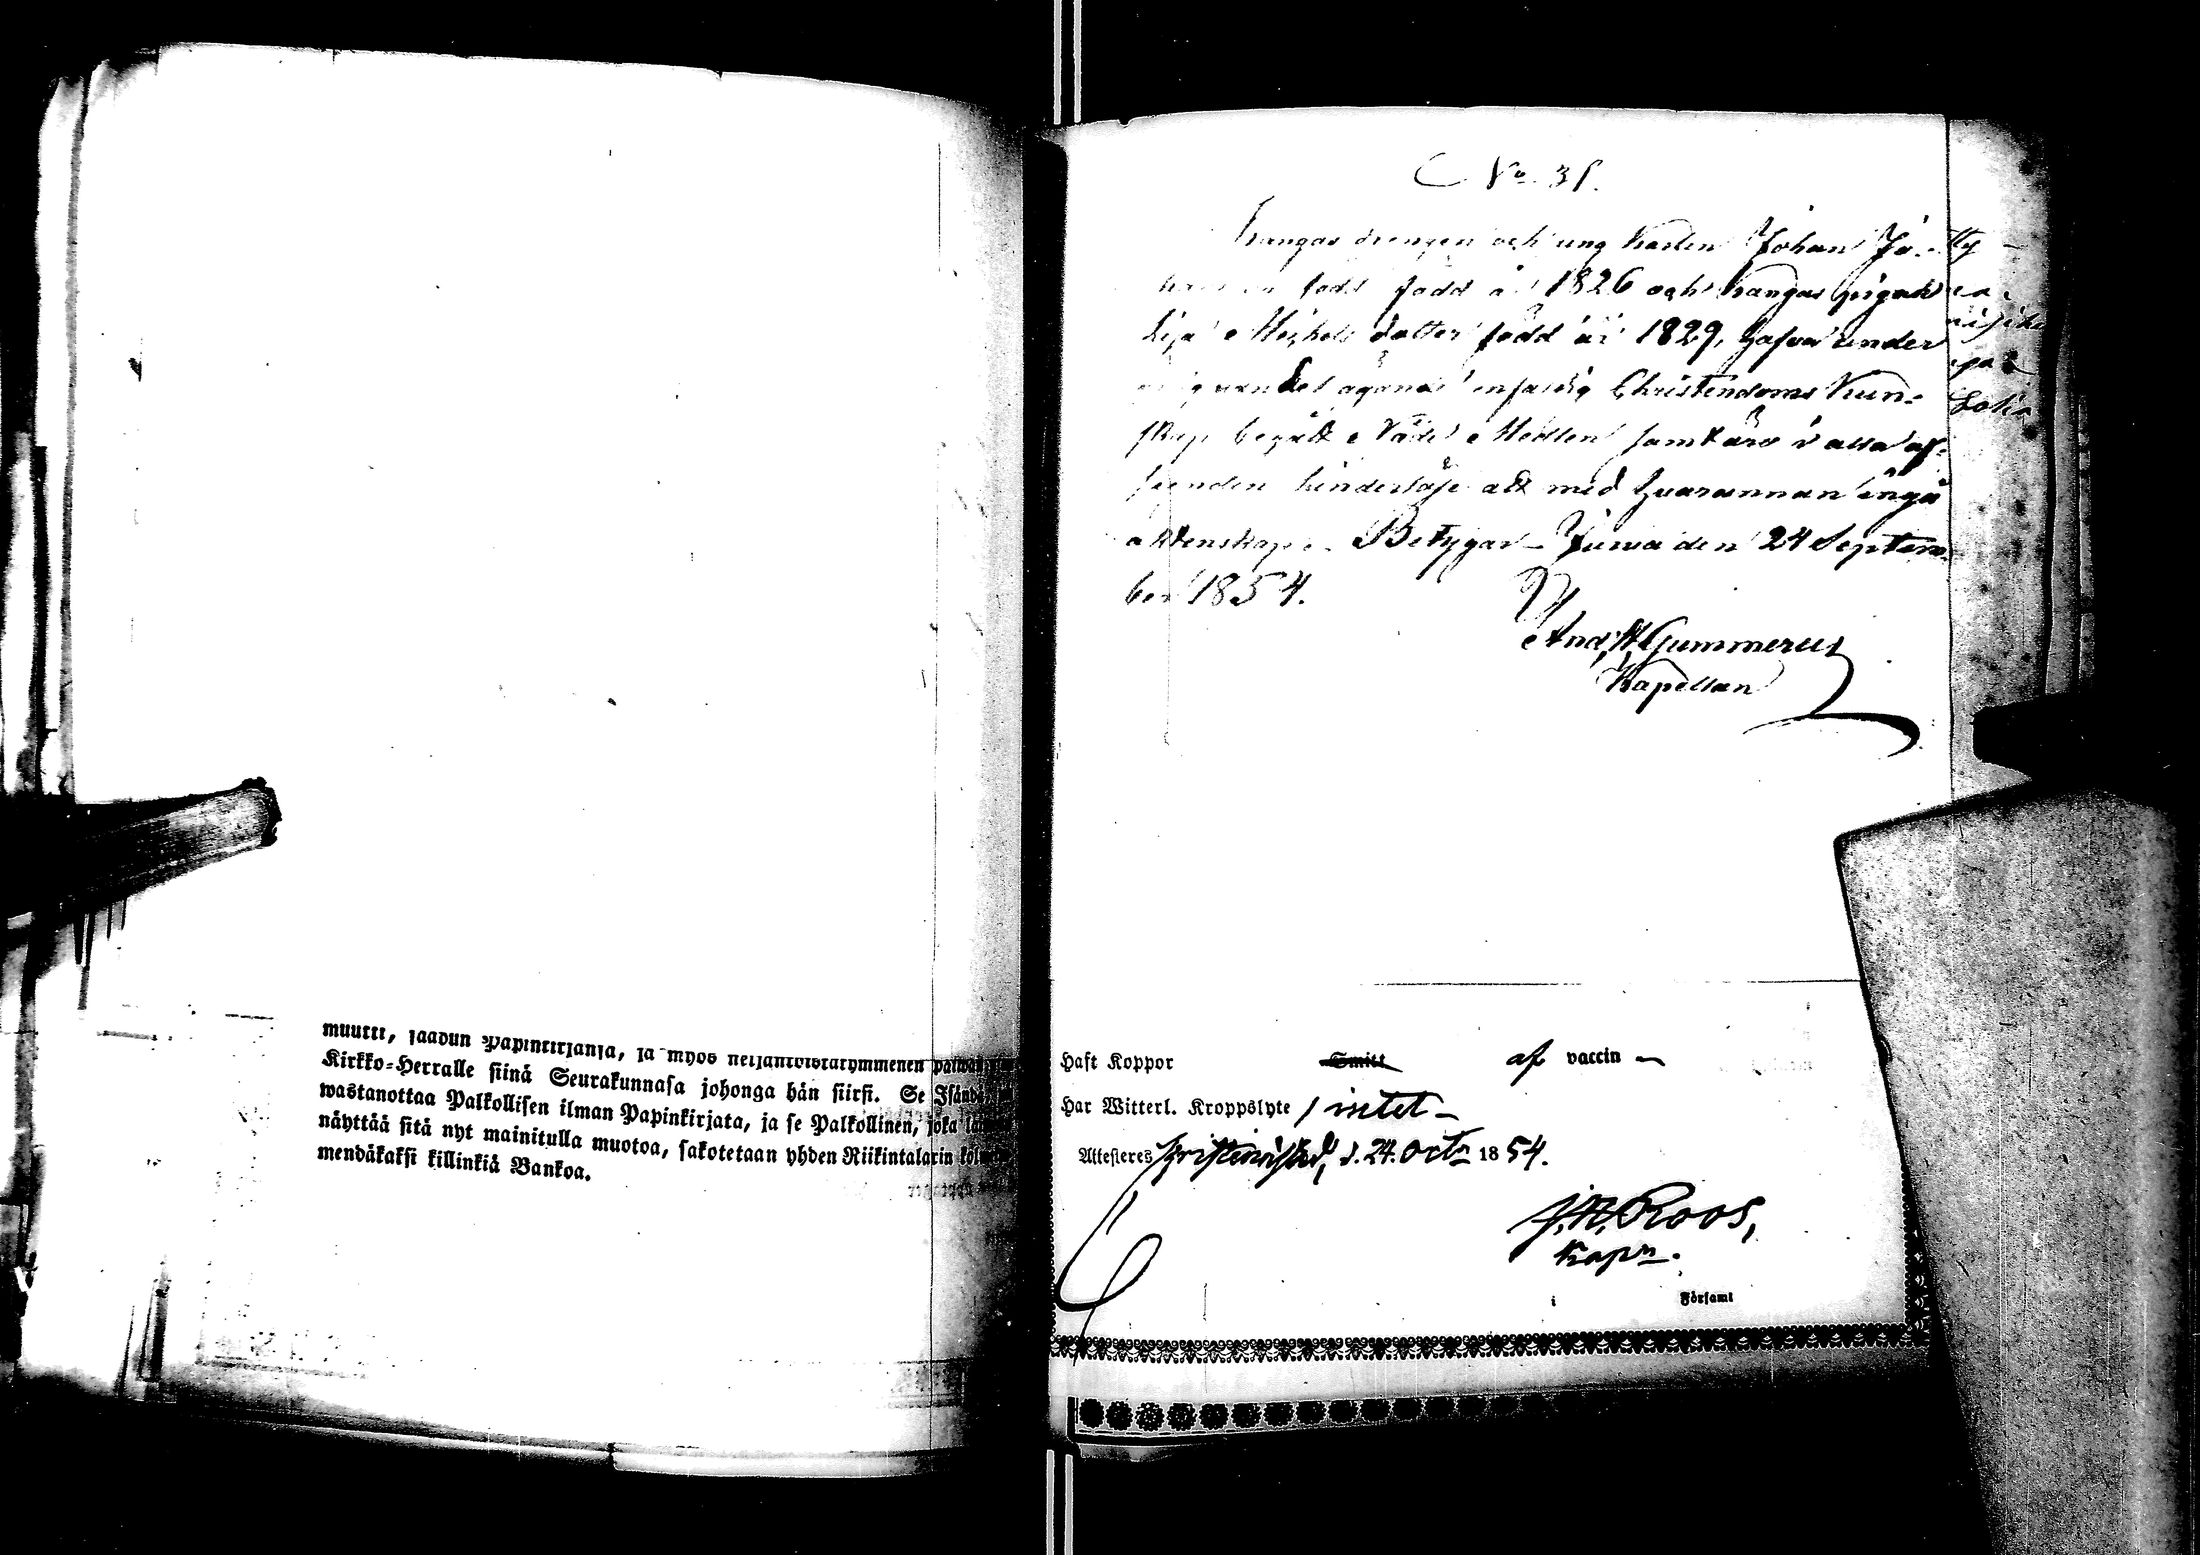 muutti, saadun Papinkirjansa, ja myös neljäntoistakymmenen
Kirkko-Herralle siinä Seurakunnasa johonga hän siirsi. Se Isändä,
wastanottaa Palkollisen ilman Papinkirjata, ja se Palkollinen, joka
näyttää sitä nyt mainitulla muotoa, sakotetaan yhden Riikintalarin
mendäkaksi killinkiä Bankoa.
No. 31.
Kangas drengen och ung Karlen Johan Jo-
född år 1826 och Kangas pigan
Lisa Michels dotter född år 1829, hafva under
enfaldig Christendoms Kun-
skap begått Nåde Medlen samt äro i alla af-
seenden hinderlöse att med hvarannan ingå
äktenskap. Betygar Jurva den 24 Septem-
ber 1854.
And. W Gummerus
Kapellan
Haft Koppor Smitt af vaccin
Har Witterl. Kroppslyte intet
Attesteres Kristinestad, d. 24. Octr 1854.
J. W. Roos,
Kapn.
i Församl